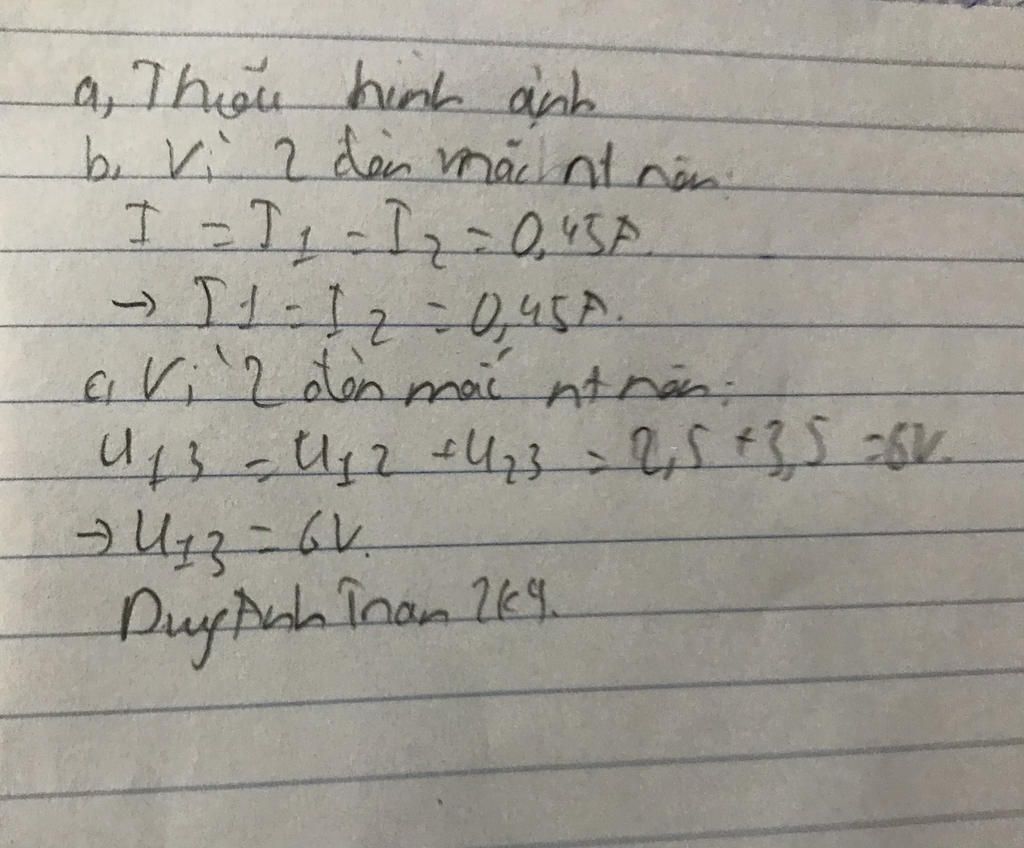 a, Thiếu hình ảnh
b, Vì 2 đèn mắc nt nên:
I = I1 = I2 = 0,45A.
→ I1 = I2 = 0,45A.
c, Vì 2 đèn mắc nt nên:
U13 = U12 + U23 = 2,5 + 3,5 = 6V.
→ U13 = 6V.
DuyAnhTran2k9.